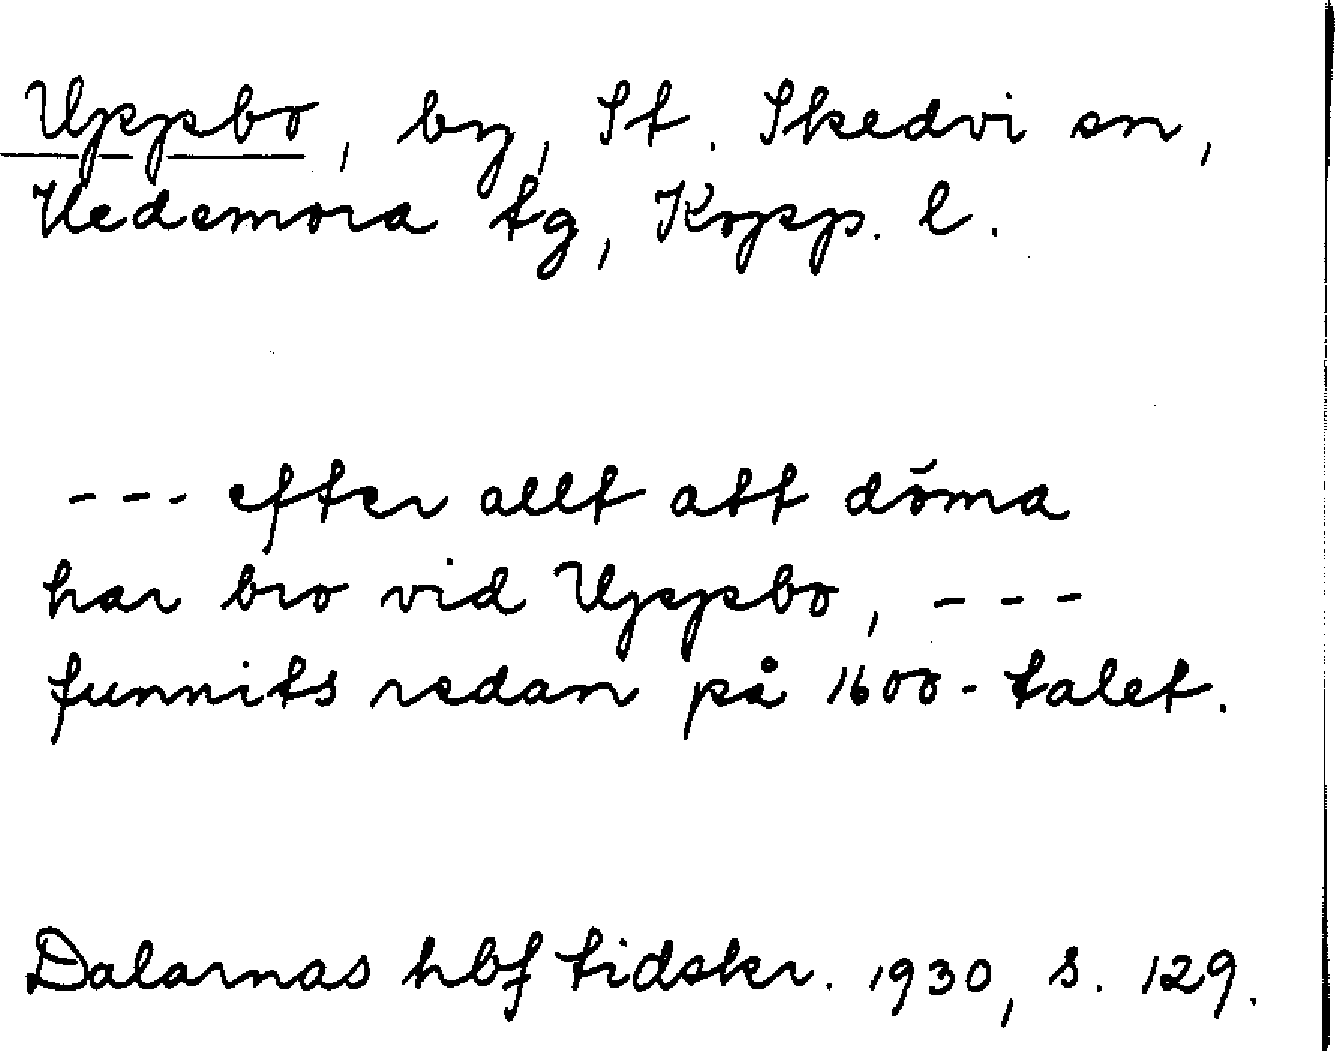 Uppsbo, by, St. Skedvi sn,
Hedemora tg, Kopp. l.
--- efter allt att döma
har bro vid Uppsbo, ---
funnits redan på 1600-talet.
Dalarnas hbf tidskr. 1930, s. 129.